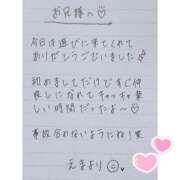 お兄様へ♡
今日は遊びに来てくれて
ありがとうございました
初めましてだけどすぐ仲
良しになれてキャッキャ楽
しい時間だったよ〜♡
事故会わないようにね!笑
えまより